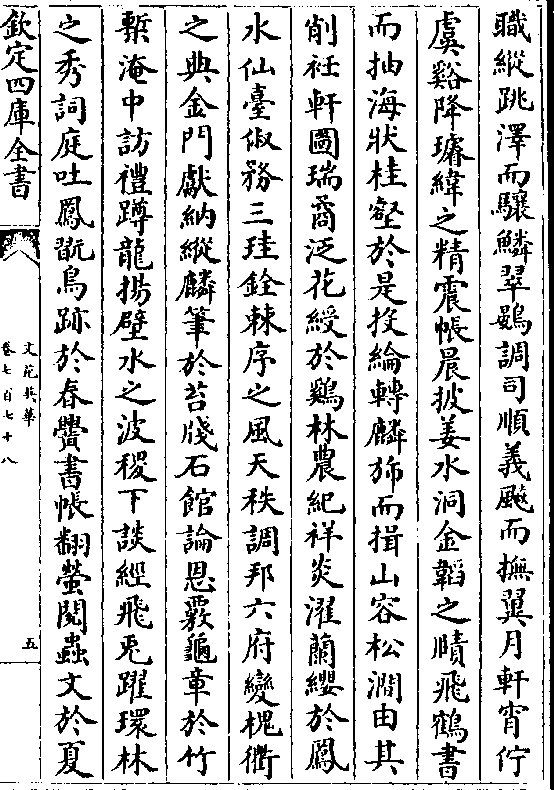 職縱跳澤而驤鱗翠鷁調司順義颷而撫翼月軒宵佇
虞谿降璿緯之精震帳晨披姜水洞金韜之賾飛鶴書
而抽海狀桂壑於是投綸轉麟斾而揖山容松澗由其
削衽軒圖瑞裔泛花綬於鷄林農紀祥炎濯蘭纓於鳳
水仙臺俶務三珪銓棘序之風天秩調邦六府變槐衢
之典金門獻納縱麟筆於苔牋石館論恩覈龜章於竹
槧淹中訪禮蹲龍揚壁水之波稷下談經飛兎躍環林
之秀詞庭吐鳳翫鳥跡於春黌書帳翻螢閱蟲文於夏
欽定四庫全書
文苑英華
卷七百七十八
五